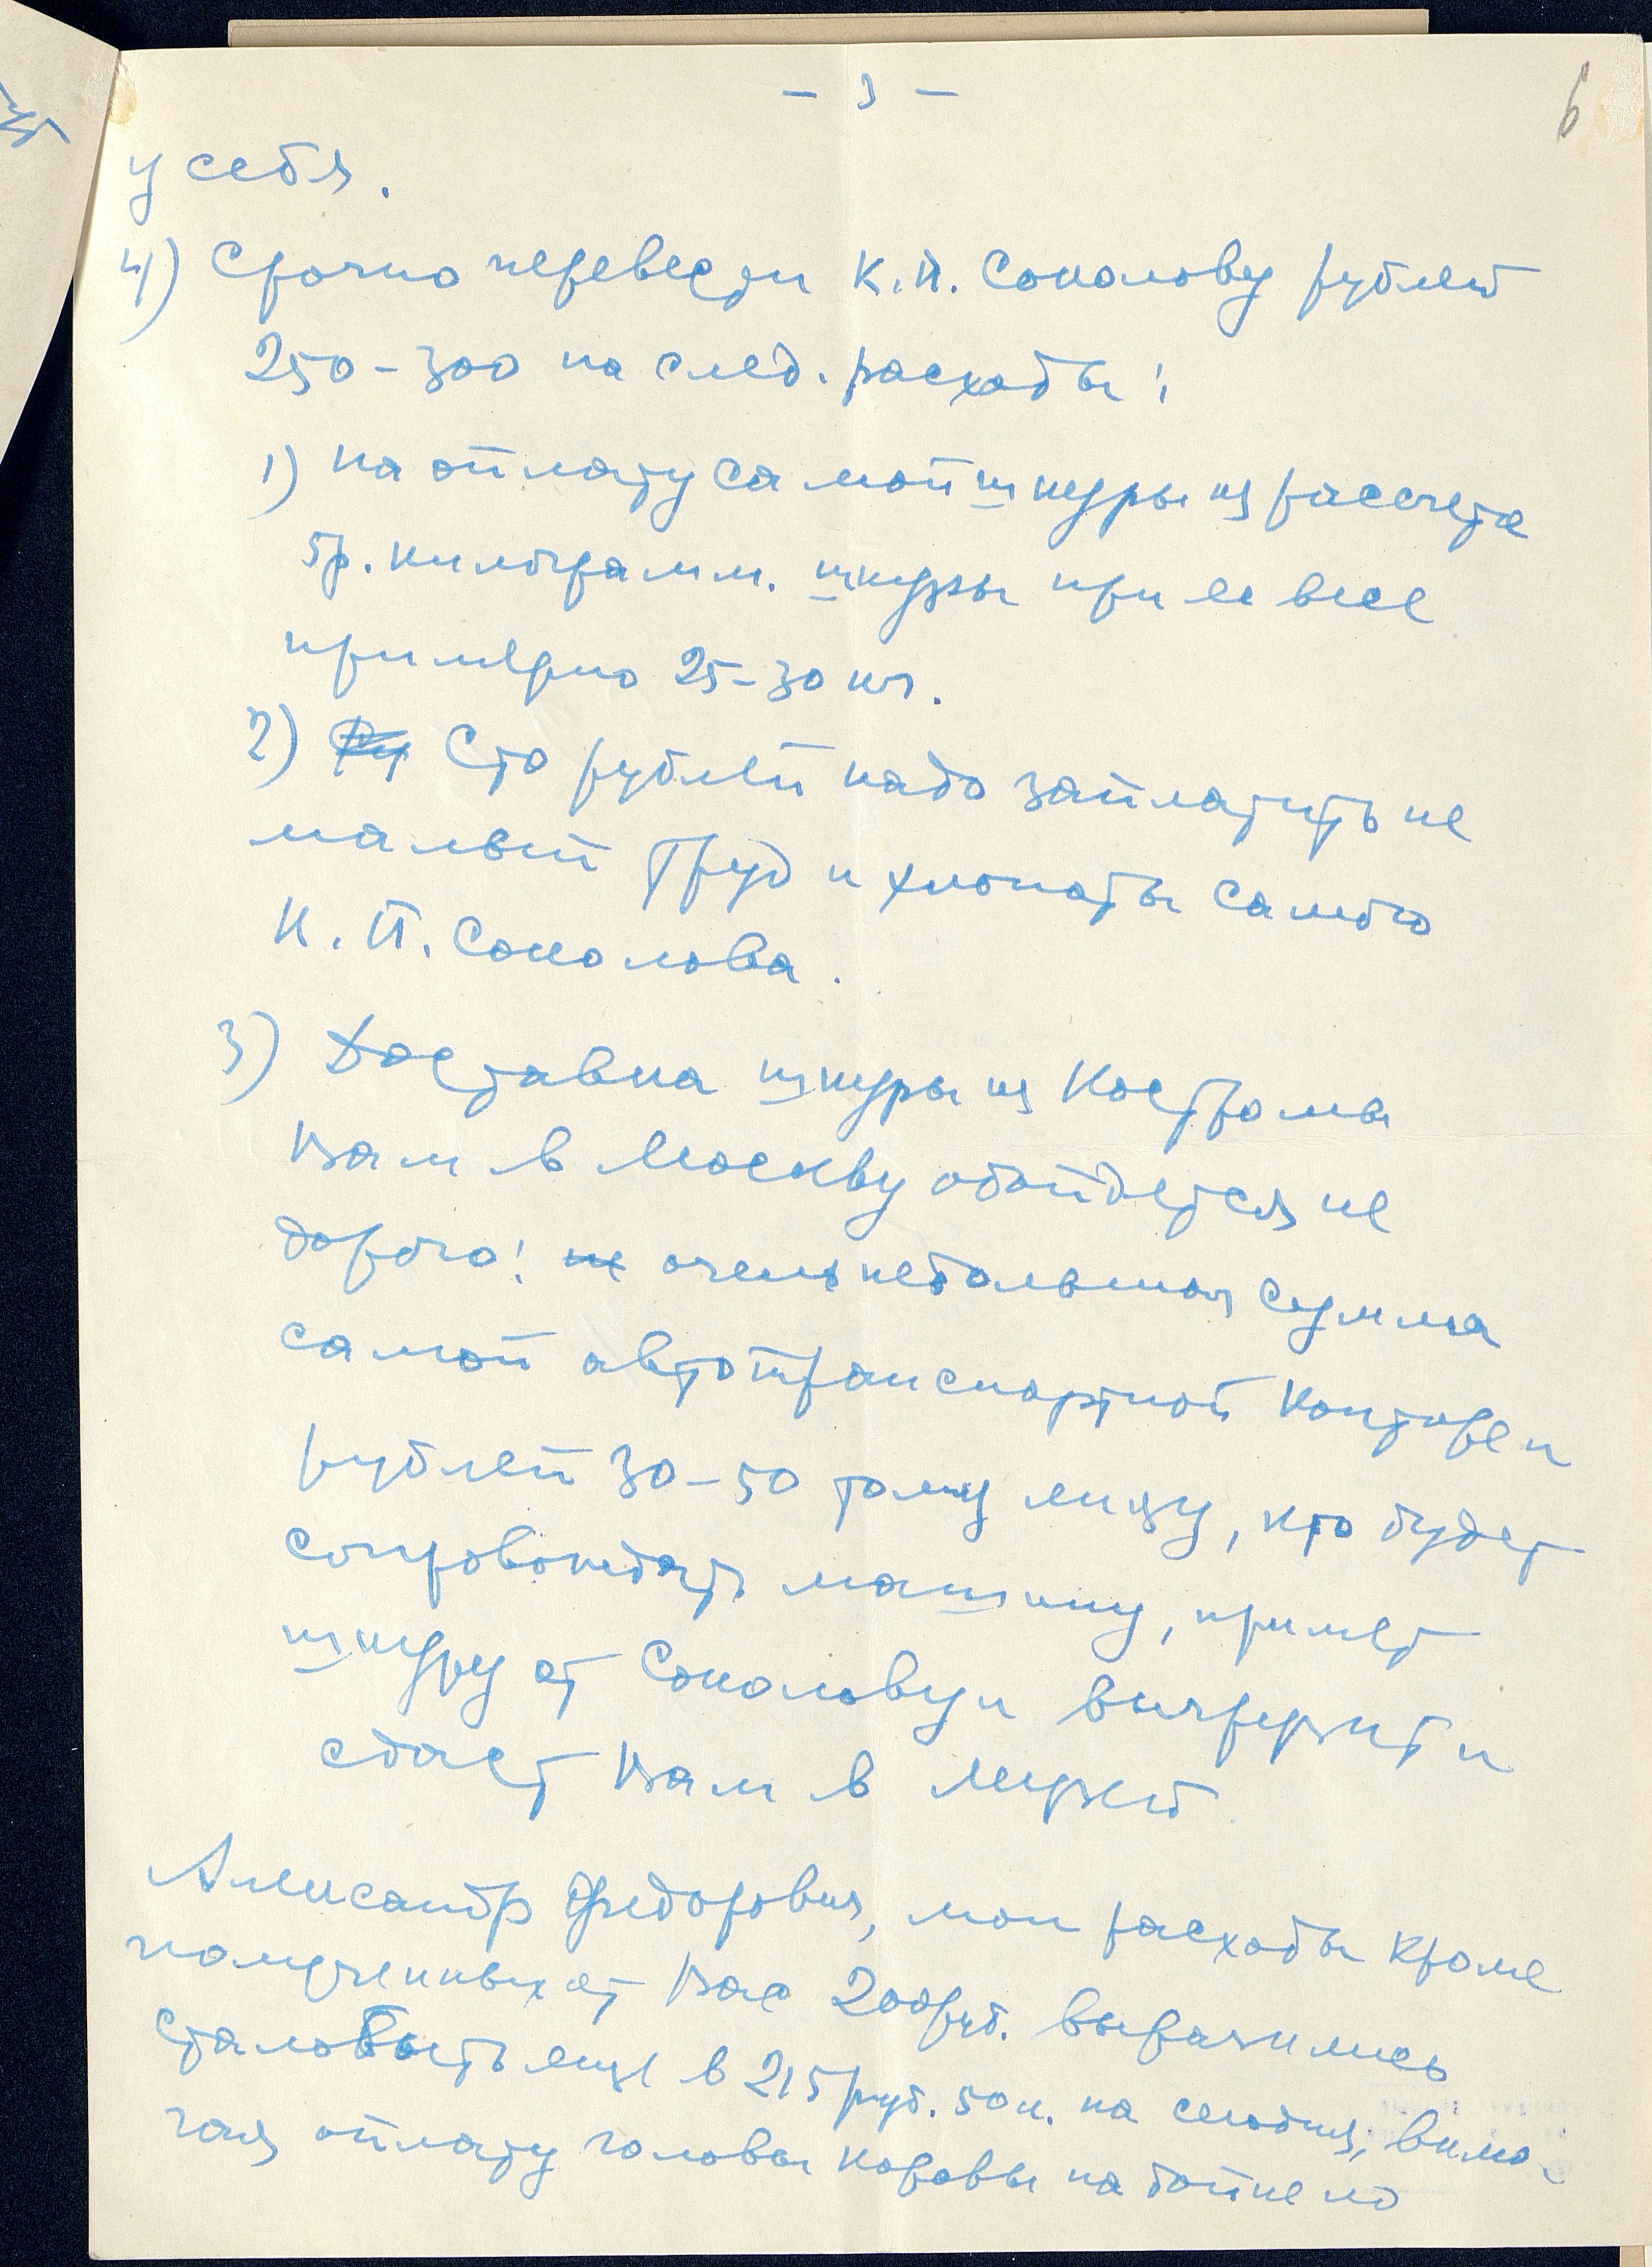 - 3 -
6
у себя.
4) Срочно перевести К.П. Соколову рублей
250-300 на след. расходы:
1) на оплату самой шкуры из рассчета
5р. килограмм. шкуры при ее весе
примерно 25-30 кг.
2) Сто рублей надо заплатить не
малый труд и хлопоты самого
К.П. Соколова.
3) Доставка шкуры из Костромы
Вам в Москву обойдется не
дорого! очень небольшая сумма
самой автотранспортной конторе и
рублей 30-50 тому лицу, кто будет
сопровождать машину, примет
шкуру от Соколову и выгрузит и
сдает Вам в музей
Александр Федорович, мои расходы кроме
полученных от Вас 200 руб. выразились
стало быть еще в 215 руб. 50 к. на сегодня, вклю-
чая оплату головы коровы на бойне но